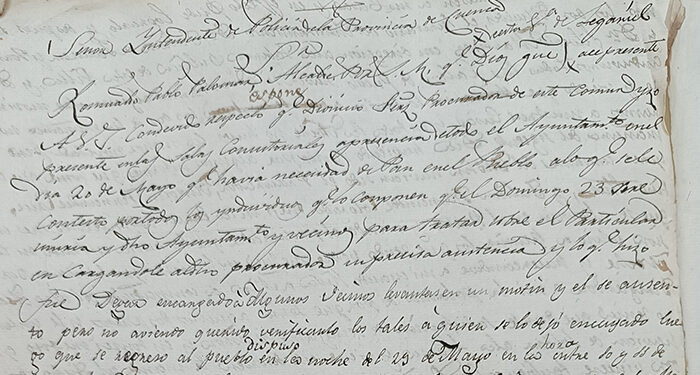 Señor Yntendente de Policia dela Provincia de Cuenca
y certa Va. de Leganiel
Sr.
Romualdo Pablo Palomar Alcalde Por S. M. q.e Dios gue. ace presente
A S.S. Con devido respecto q.e Dionicio Saez Procurador de este Comun y zo
espone
presente enlas Salas Consistoriales apresencia detodo el Ayuntamto. enel
dia 20 de Mayo q.e havia necesidad de Pan enel Pueblo alo q.e sele
Contesto portodos los yndividuos q.e lo componen q.e el Domingo 23 sere
uniria dho Ayuntamto. y vecinos para tratar sobre el Particular
en Cargandole adho procurador su precisa asistencia y lo q.e hizo
fue Dejar encargado á Algunos Vecinos levantasen un motin y el se ausen-
to pero no aviendo querido verificarlo los tales á quien se lo dejó encargado lue
dispuso hora
go que se regreso al pueblo en la noche del 23 de Mayo en la entre 10 y 11 de